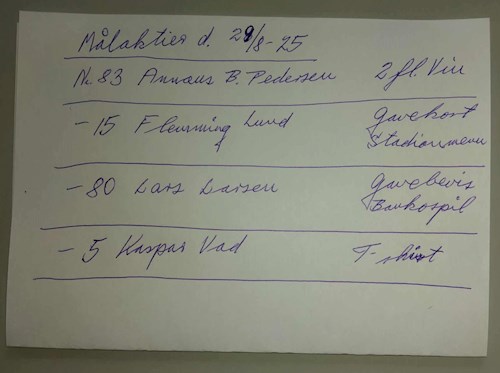 Målaktier d. 29/8-25
Nr. 83 Annaus B. Pedersen 2 fl. Vin
- 15 Flemming Lund Gavekort
Stadionmenu
- 80 Lars Larsen Gavebevis
Bankospil
- 5 Kaspar Vad T-shirt